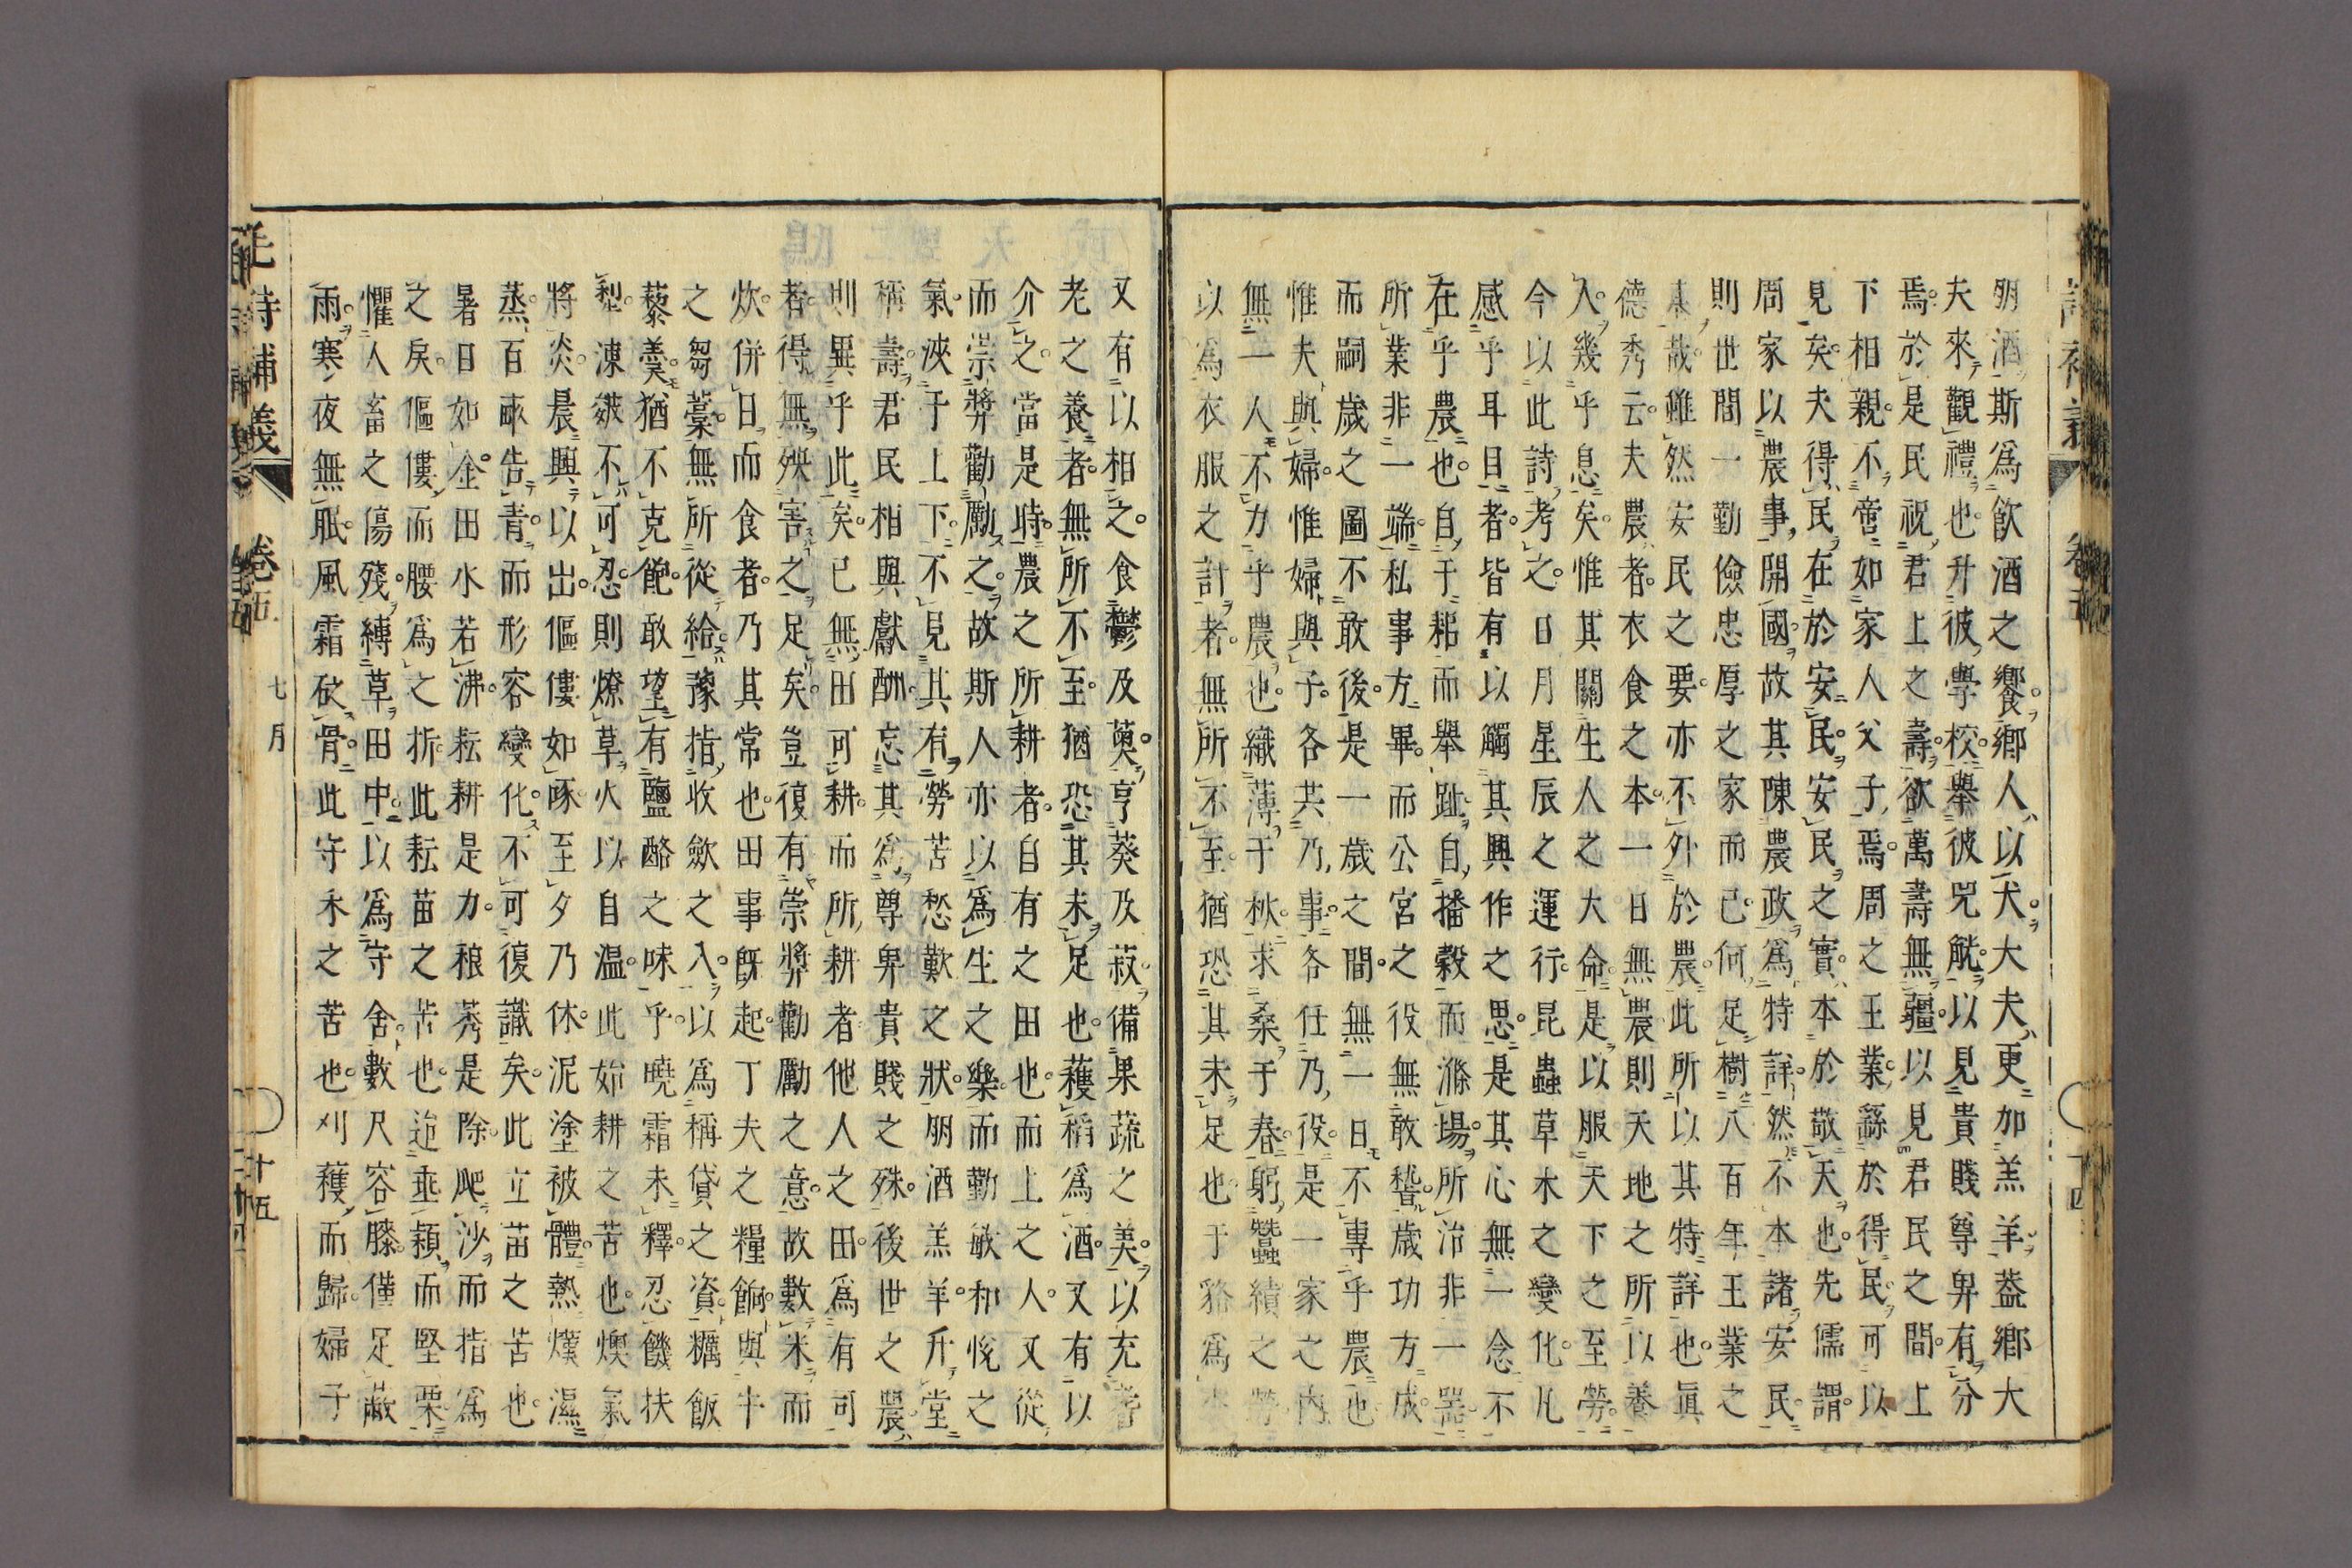 朋酒斯爲飮酒之饗鄕人以犬大夫更加羔羊葢鄕大
夫來觀禮也升彼學校舉彼兕觥以見貴賤尊卑有分
焉於是民祝君上之壽欲萬壽無疆以見君民之間上
下相親不啻如家人父子焉周之王業繇於得民可以
見矣夫得民在於安民安民之實本於敬天也先儒謂
周家以農事開國故其陳農政爲特詳然不本諸安民
則世間一勤儉忠厚之家而已何足樹八百年王業之
基哉雖然安民之要亦不外於農此所以其特詳也眞
德秀云夫農者衣食之本一日無農則天地之所以養
人幾乎息矣惟其關生人之大命是以服天下之至勞
今以此詩考之日月星辰之運行昆蟲草木之變化凡
感乎耳目者皆有以觸其興作之思是其心無一念不
在乎農也自于耜而舉趾自播穀而滌場所治非一器
所業非一端私事方畢而公宮之役無敢㬱歲功方成
而嗣歲之圖不敢後是一歲之間無一日不專乎農也
惟夫與婦惟婦與子各共乃事各任乃役是一家之內
無一人不力乎農也織薄于秋求桑于春躬蠶績之勞
以爲衣服之計者無所不至猶恐其未足也于貉爲
又有以相之食鬱及薁亨葵及菽備果蔬之美以充耆
老之養者無所不至猶恐其未足也穫稻爲酒又有以
介之當是時農之所耕者自有之田也而上之人又從
而崇奬勸勵之故斯人亦以爲生之樂而勤敏和悅之
氣浹于上下不見其有勞苦愁歎之狀朋酒羔羊升堂
稱壽君民相與獻酬忘其爲尊卑貴賤之殊後世之農
則異乎此矣已無田可耕而所耕者他人之田爲有可
者得無殃害之足矣豈復有崇奬勸勵之意故數米而
炊併日而食者乃其常也田事旣起丁夫之糧餉與牛
之芻藁無所從給豫指收斂之入以爲稱貸之資糲飯
藜羹猶不克飽敢望有鹽酪之味乎曉霜未釋忍饑扶
犁凍皴不可忍則燎草火以自温此始耕之苦也燠氣
將炎晨興以出傴僂如啄至夕乃休泥塗被體熱爍濕
蒸百畝告青而形容變化不可復識矣此立苗之苦也
暑日如金田水若沸耘耕是力稂莠是除爬沙而指爲
之戾傴僂而腰爲之折此耘苗之苦也迨垂穎而堅栗
懼人畜之傷殘縛草田中以爲守舍數尺容膝僅足蔽
雨寒夜無眠風霜砭骨此守禾之苦也刈穫而歸婦子
毛詩補義 卷五 七月 十五